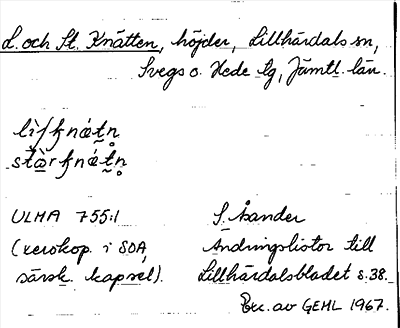 L. och St. Knätten, höjder, Lillhärdals sn,
Svegs o. Hede tg, Jämtl. län.
stàrknátn̥
ULMA 755:1
(xerokop. i SOA,
särsk. kapsel).
S. Åsander
Ändringslistor till
Lillhärdalsbladet s. 38.
Exc. av GEML 1967.